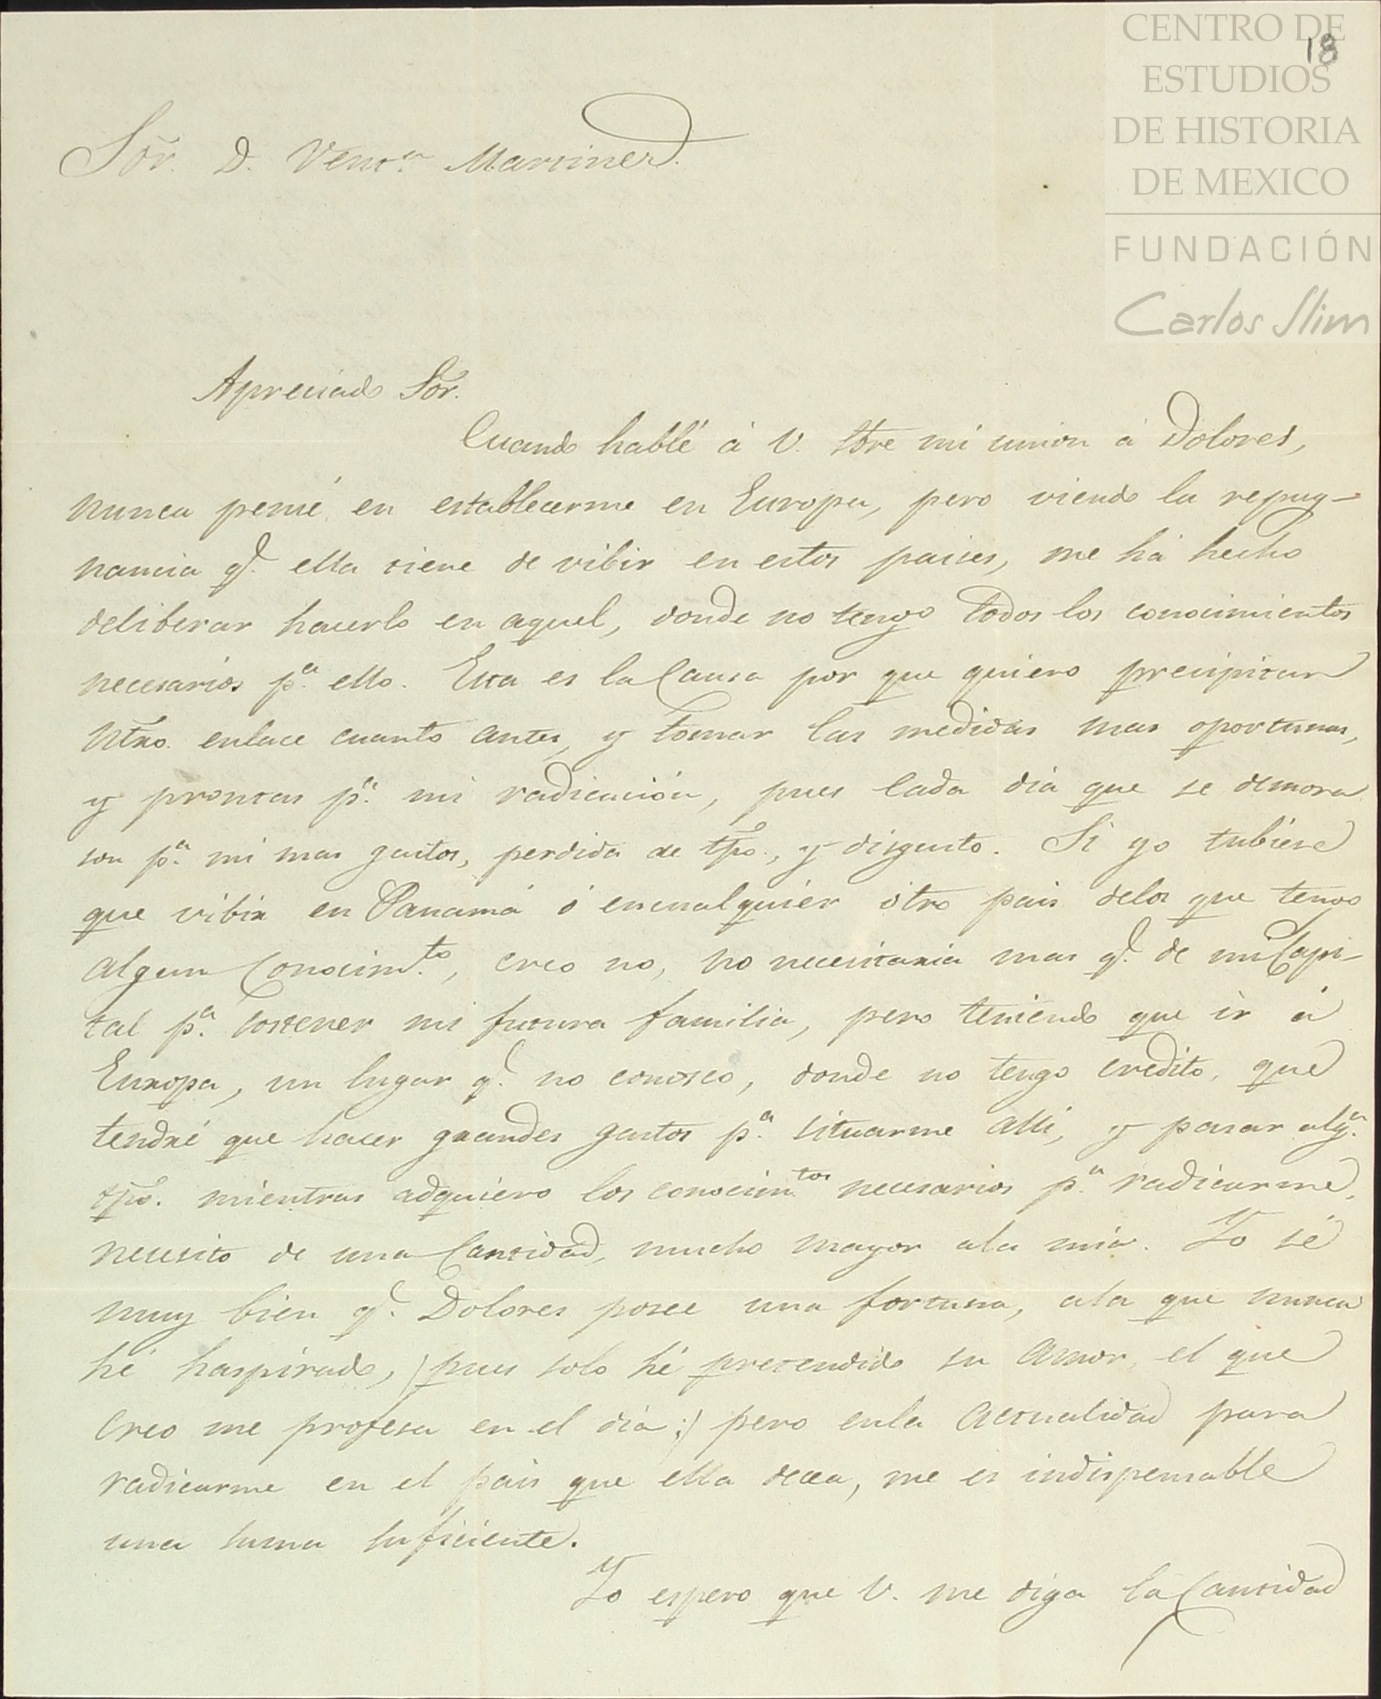 CENTRO DE
ESTUDIOS
DE HISTORIA
DE MEXICO
FUNDACIÓN
Carlos Slim
18
Sōr. D. Vent.ᵃ Martinez.
Apreciado Sōr.
Cuando hablé á V. sōre mi union á Dolores,
nunca pensé en establecerme en Europa, pero viendo la repug-
nancia q.ᵉ ella tiene de vibir en estos paises, me há hecho
deliberar hacerlo en aquel, donde no tengo todos los conocimientos
necesarios p.ᵃ ello. Esta es la Causa por que quiero precipitar
ntro. enlace cuanto antes, y tomar las medidas mas oportunas,
y prontas p.ᵃ mi radicación, pues Cada dia que se demora
son p.ᵃ mi mas gastos, perdida de tpō., y disgusto. Si yo tubiese
que vibir en Panamá ó encualquiér otro pais delos que tengo
algun Conocim.ᵗᵒ, creo no, no necesitaria mas q.ᵉ de mi Capi-
tal p.ᵃ sostener mi futura familia, pero teniendo que ir á
Europa, un lugar q.ᵉ no conosco, donde no tengo credito, que
tendré que hacer grandes gastos p.ᵃ situarme alli, y pasar alg.ⁿ
tpō. mientras adquiero los conocim.ᵗᵒˢ necesarios p.ᵃ radicarme,
necesito de una Cantidad, mucho mayor ala mia. Yo sé
muy bien q.ᵉ Dolores posee una fortuna, ala que nunca
hé haspirado, (pues solo hé pretendido su amor, el que
creo me profesa en el dia;) pero enla actualidad para
radicarme en el pais que ella decea, me es indispensable
una suma suficiente.
Yo espero que V. me diga la Cantidad